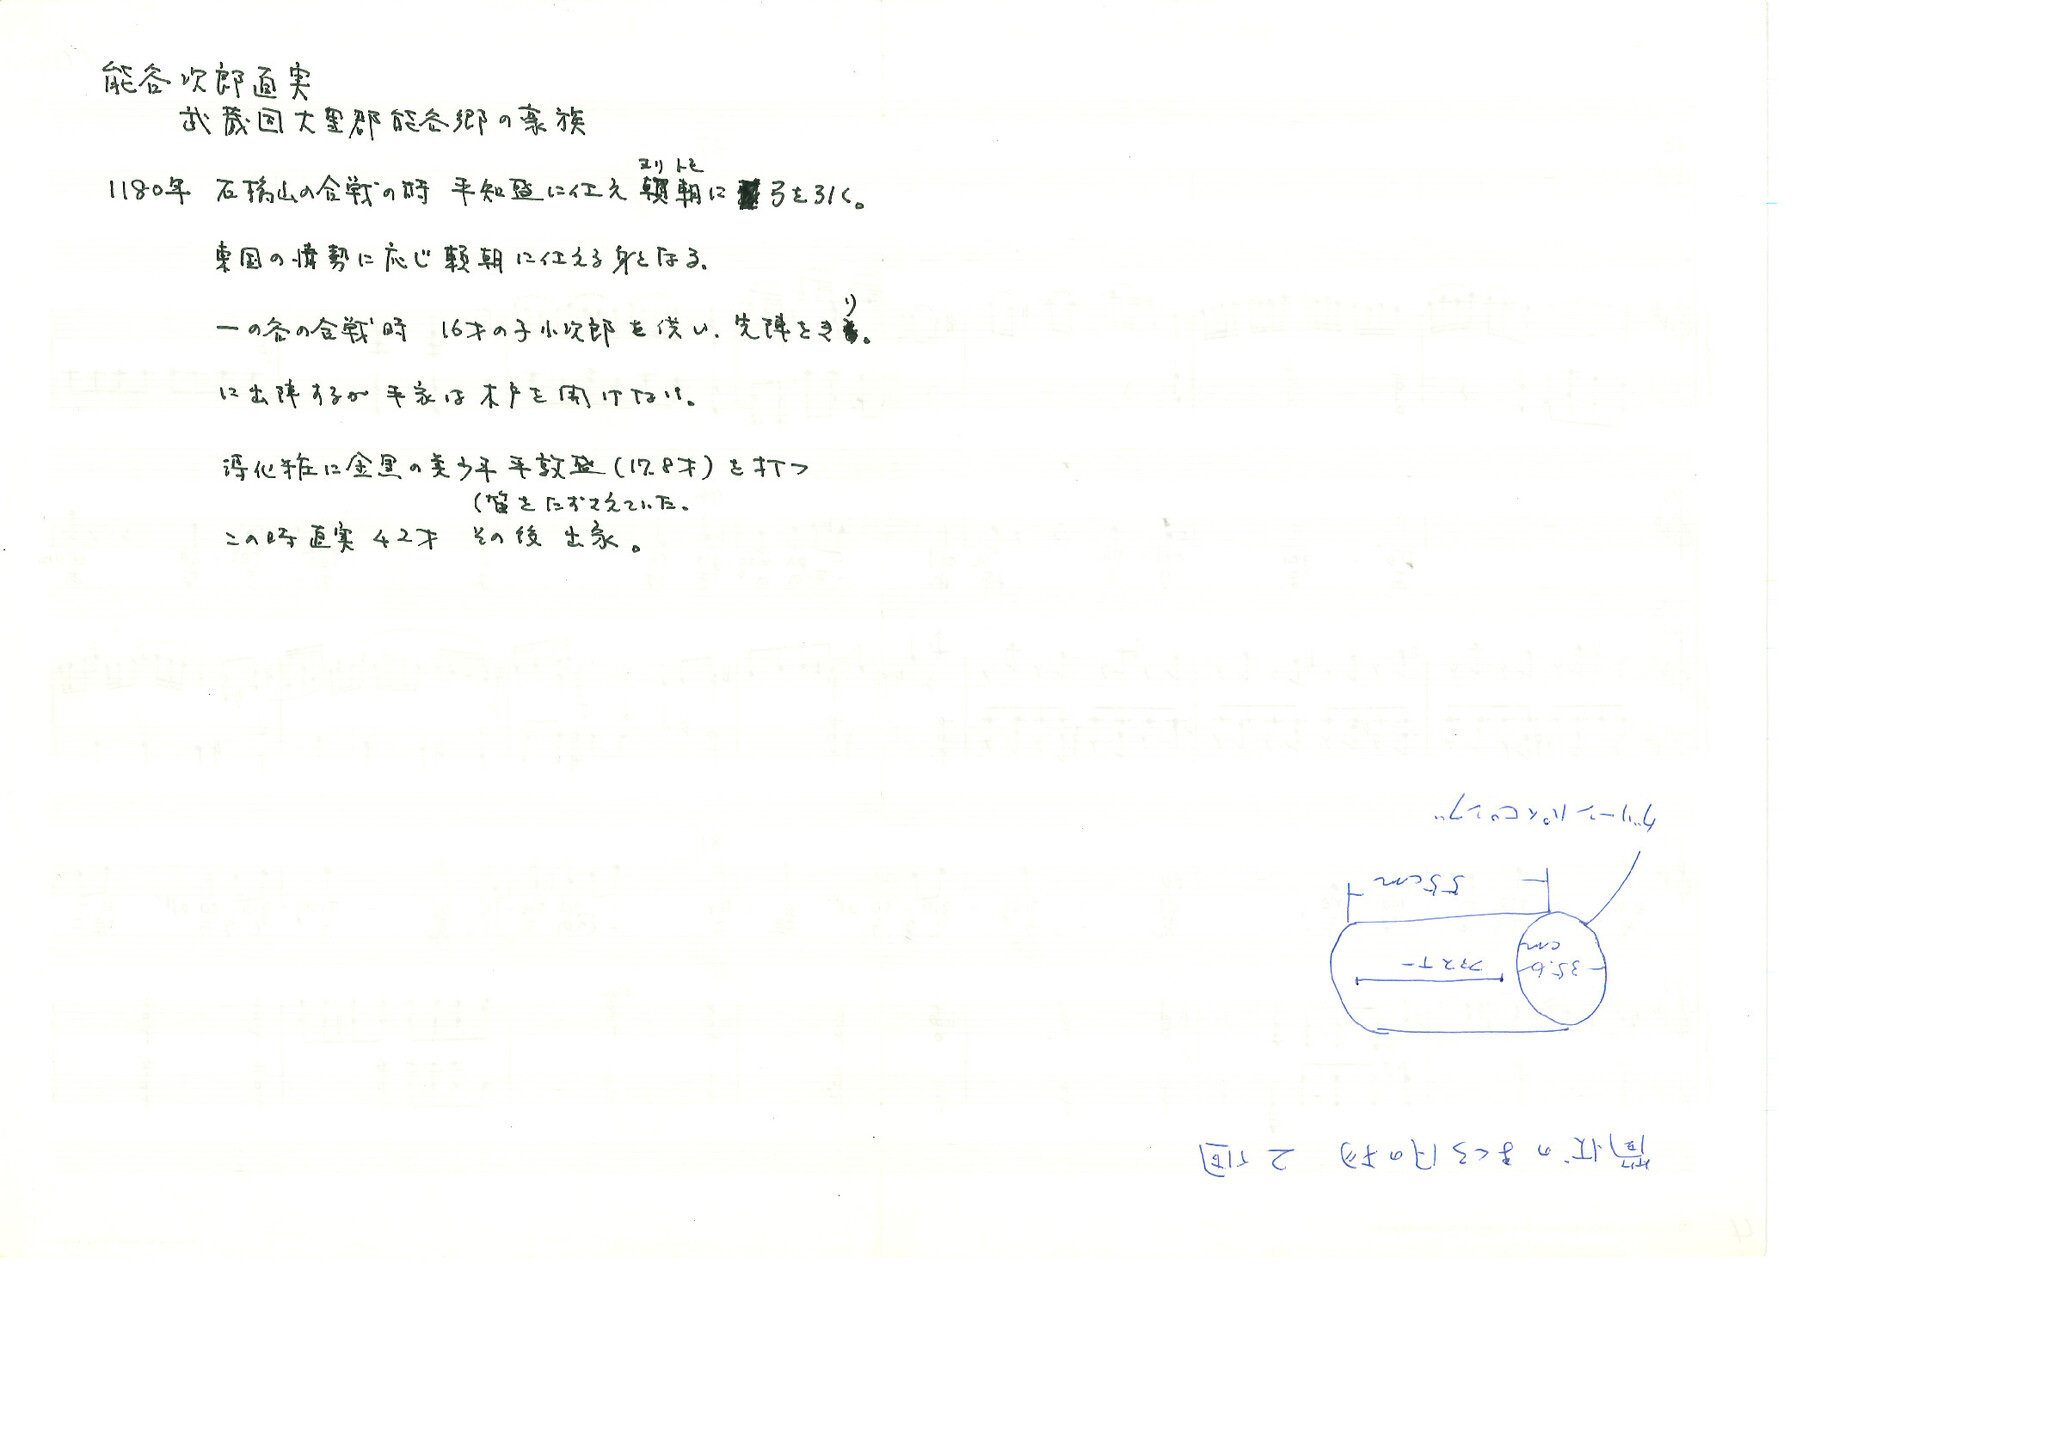 能谷次郎直実
武蔵国大里郡能谷郷の豪族
ヨリトモ
1180年 石橋山の合戦の時 平知盛に仕え 頼朝に 弓を引く。
東国の情勢に応じ頼朝に仕える身となる。
一の谷の合戦時 16才の子小次郎を供い、先陣をきり。
に出陣するが平家は木戸を開けない。
薄化粧に金黒の美少年平敦盛(17.8才)を打つ
(笛をたずさえていた。
この時直実42才 その後出家。
筒状のまくら 2個
ファスナー
35.6
cm
55cm
グリーンパイピング